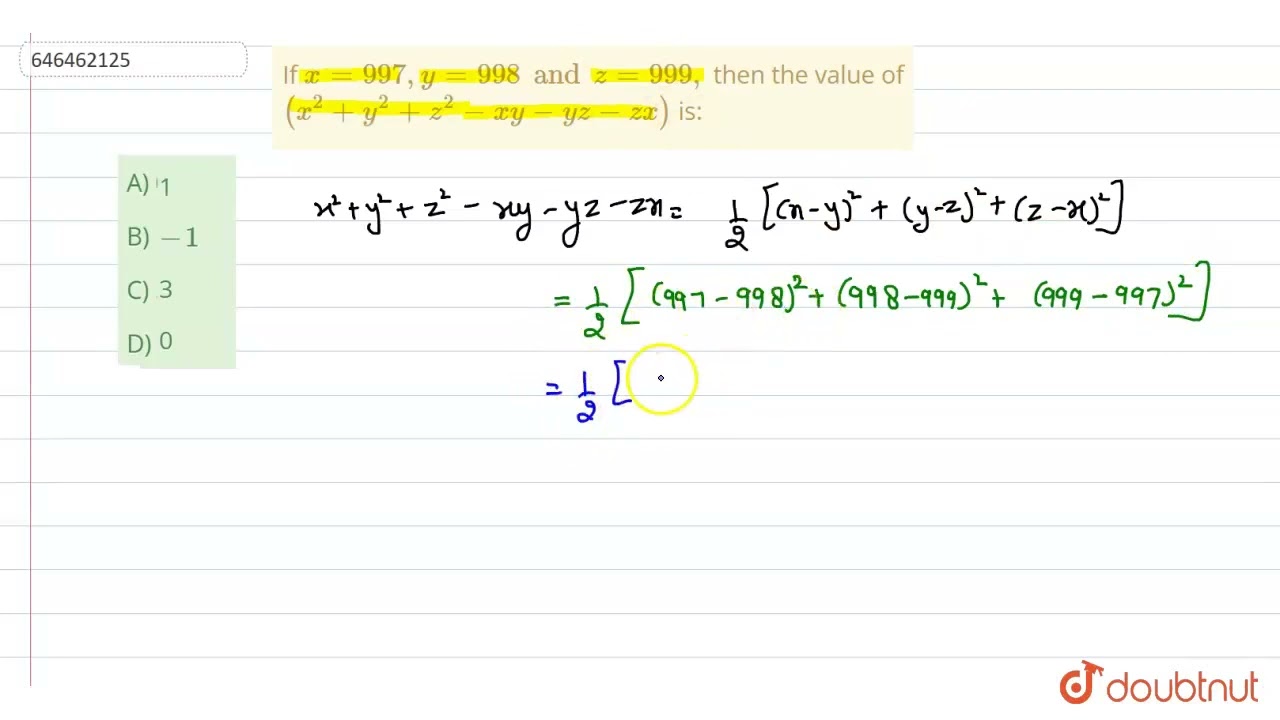 646462125
If x = 997, y = 998 and z = 999, then the value of
(x² + y² + z² − xy − yz − zx) is:
A) 1
B) −1
C) 3
D) 0
x² + y² + z² − xy − yz − zx = 1/2 [(x−y)² + (y−z)² + (z−x)²]
= 1/2 [(997−998)² + (998−999)² + (999−997)²]
= 1/2 [
doubtnut